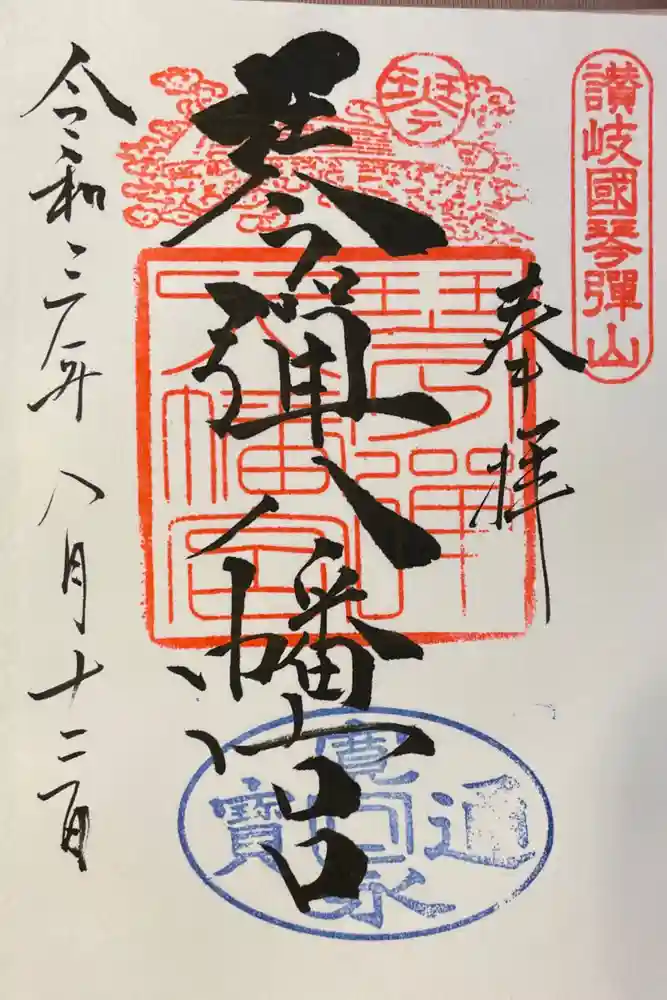 讃岐國琴彈山
奉拝
琴弾八幡宮
琴彈山
八幡宮
寛永通寳
令和三年八月十二日